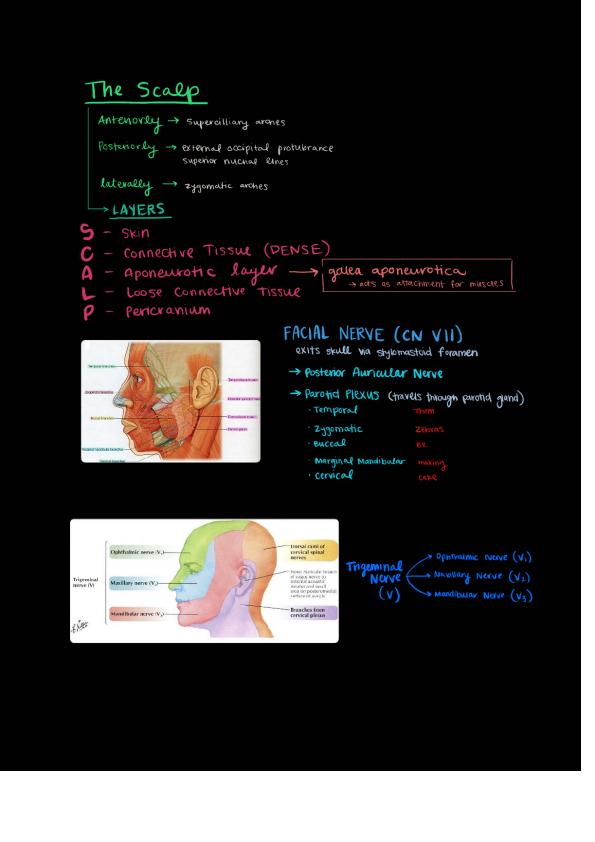 The Scalp
Anteriorly → supercilliary arches
Posteriorly → external occipital protubrance
superior nuchal lines
laterally → zygomatic arches
LAYERS
S - Skin
C - Connective Tissue (DENSE)
A - Aponeurotic layer → galea aponeurotica
→ acts as attachment for muscles
L - Loose Connective Tissue
P - Pericranium
FACIAL NERVE (CN VII)
exits skull via stylomastoid foramen
→ Posterior Auricular Nerve
→ Parotid Plexus (travels through parotid gland)
· Temporal Them
· Zygomatic Zebras
· Buccal BR
· Marginal Mandibular making
· Cervical cake
Temporal branches
Zygomatic branches
Buccal branches
Marginal mandibular branches
Cervical branches
Trigeminal nerve (V)
Ophthalmic nerve (V₁)
Maxillary nerve (V₂)
Mandibular nerve (V₃)
Dorsal rami of
cervical spinal
nerves
Note: Auricular branch
of vagus nerve to
external acoustic
meatus and small
area on posteromedial
surface of auricle
Branches from
cervical plexus
Trigeminal Nerve (V)
→ Ophthalmic Nerve (V₁)
→ Maxillary Nerve (V₂)
→ Mandibular Nerve (V₃)